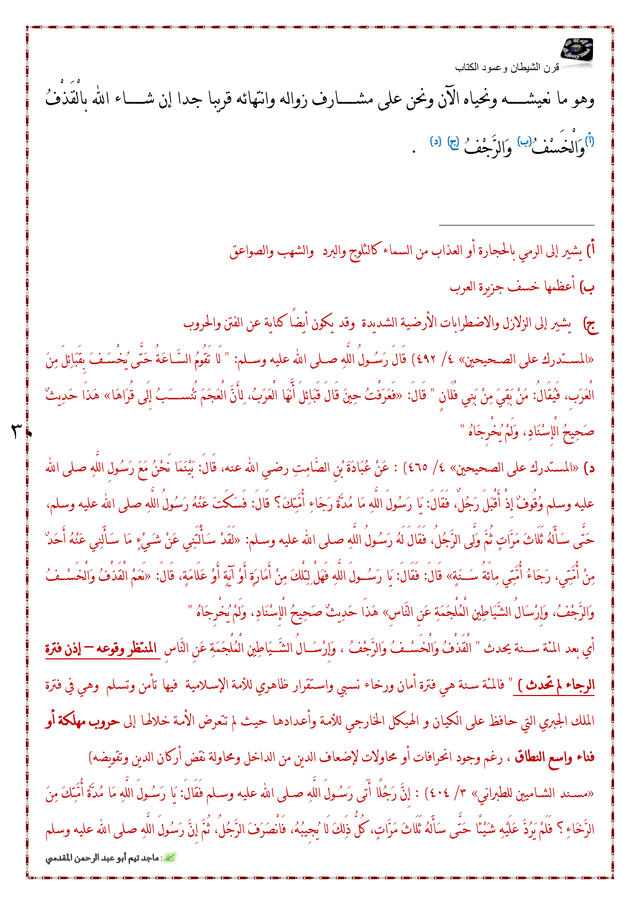 قرن الشيطان وعمود الكتاب
وهو ما نعيشه ونحياه الآن ونحن على مشارف زواله وانتهائه قريبا جدا إن شاء الله بالْقَذْفُ
(أ) وَالْخَسْفُ (ب) وَالرَّجْفُ (ج) (د) .
أ) يشير إلى الرمي بالحجارة أو العذاب من السماء كالثلوج والبرد والشهب والصواعق
ب) أعظمها خسف جزيرة العرب
ج) يشير إلى الزلازل والاضطرابات الأرضية الشديدة وقد يكون أيضاً كناية عن الفتن والحروب
«المستدرك على الصحيحين» ٤/ ٤٩٢) قَالَ رَسُولُ اللَّهِ صلى الله عليه وسلم: " لَا تَقُومُ السَّاعَةُ حَتَّى يُخْسَفَ بِقَبَائِلَ مِنَ
الْعَرَبِ، فَيُقَالُ: مَنْ بَقِيَ مِنْ بَنِي فُلَانٍ " قَالَ: «فَعَرَفْتُ حِينَ قَالَ قَبَائِلَ أَنَّهَا الْعَرَبُ، لِأَنَّ الْعَجَمَ تُنْسَبُ إِلَى قُرَاهَا» هَذَا حَدِيثٌ
صَحِيحُ الْإِسْنَادِ، وَلَمْ يُخْرِجَاهُ "
٣٠
د) «المستدرك على الصحيحين» ٤/ ٤٦٥) : عَنْ عُبَادَةَ بْنِ الصَّامِتِ رضي الله عنه، قَالَ: بَيْنَمَا نَحْنُ مَعَ رَسُولِ اللَّهِ صلى الله
عليه وسلم وُقُوفٌ إِذْ أَقْبَلَ رَجُلٌ، فَقَالَ: يَا رَسُولَ اللَّهِ مَا مُدَّةُ رَجَاءِ أُمَّتِكَ؟ قَالَ: فَسَكَتَ عَنْهُ رَسُولُ اللَّهِ صلى الله عليه وسلم،
حَتَّى سَأَلَهُ ثَلَاثَ مَرَّاتٍ ثُمَّ وَلَّى الرَّجُلُ، فَقَالَ لَهُ رَسُولُ اللَّهِ صلى الله عليه وسلم: «لَقَدْ سَأَلْتَنِي عَنْ شَيْءٍ مَا سَأَلَنِي عَنْهُ أَحَدٌ
مِنْ أُمَّتِي، رَجَاءُ أُمَّتِي مِائَةُ سَنَةٍ» قَالَ: فَقَالَ: يَا رَسُولَ اللَّهِ فَهَلْ لِتِلْكَ مِنْ أَمَارَةٍ أَوْ آيَةٍ أَوْ عَلَامَةٍ، قَالَ: «نَعَمْ الْقَذْفُ وَالْخَسْفُ
وَالرَّجْفُ، وَإِرْسَالُ الشَّيَاطِينِ الْمُلْجَمَةِ عَنِ النَّاسِ» هَذَا حَدِيثٌ صَحِيحُ الْإِسْنَادِ، وَلَمْ يُخْرِجَاهُ "
أي بعد المئة سنة يحدث " الْقَذْفُ وَالْخَسْفُ وَالرَّجْفُ ، وَإِرْسَالُ الشَّيَاطِينِ الْمُلْجَمَةِ عَنِ النَّاسِ المنتظر وقوعه – إذن فترة
الرجاء لم تحدث ) " فالمئة سنة هي فترة أمان ورخاء نسبي واستقرار ظاهري للأمة الإسلامية فيها تأمن وتسلم وهي في فترة
الملك الجبري التي حافظ على الكيان و الهيكل الخارجي للأمة وأعدادها حيث لم تتعرض الأمة خلالها إلى حروب مهلكة أو
فناء واسع النطاق ، رغم وجود انحرافات أو محاولات لإضعاف الدين من الداخل ومحاولة نقض أركان الدين وتقويضه)
«مسند الشاميين للطبراني» ٣/ ٤٠٤) : إِنَّ رَجُلًا أَتَى رَسُولَ اللَّهِ صلى الله عليه وسلم فَقَالَ: يَا رَسُولَ اللَّهِ مَا مُدَّةُ أُمَّتِكَ مِنَ
الرَّخَاءِ ؟ فَلَمْ يَرُدَّ عَلَيْهِ شَيْئًا حَتَّى سَأَلَهُ ثَلَاثَ مَرَّاتٍ، كُلُّ ذَلِكَ لَا يُجِيبُهُ، فَانْصَرَفَ الرَّجُلُ، ثُمَّ إِنَّ رَسُولَ اللَّهِ صلى الله عليه وسلم
: ماجد تيم أبو عبد الرحمن المقدسي